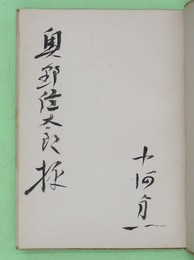 奥野信太郎様
十河カ一